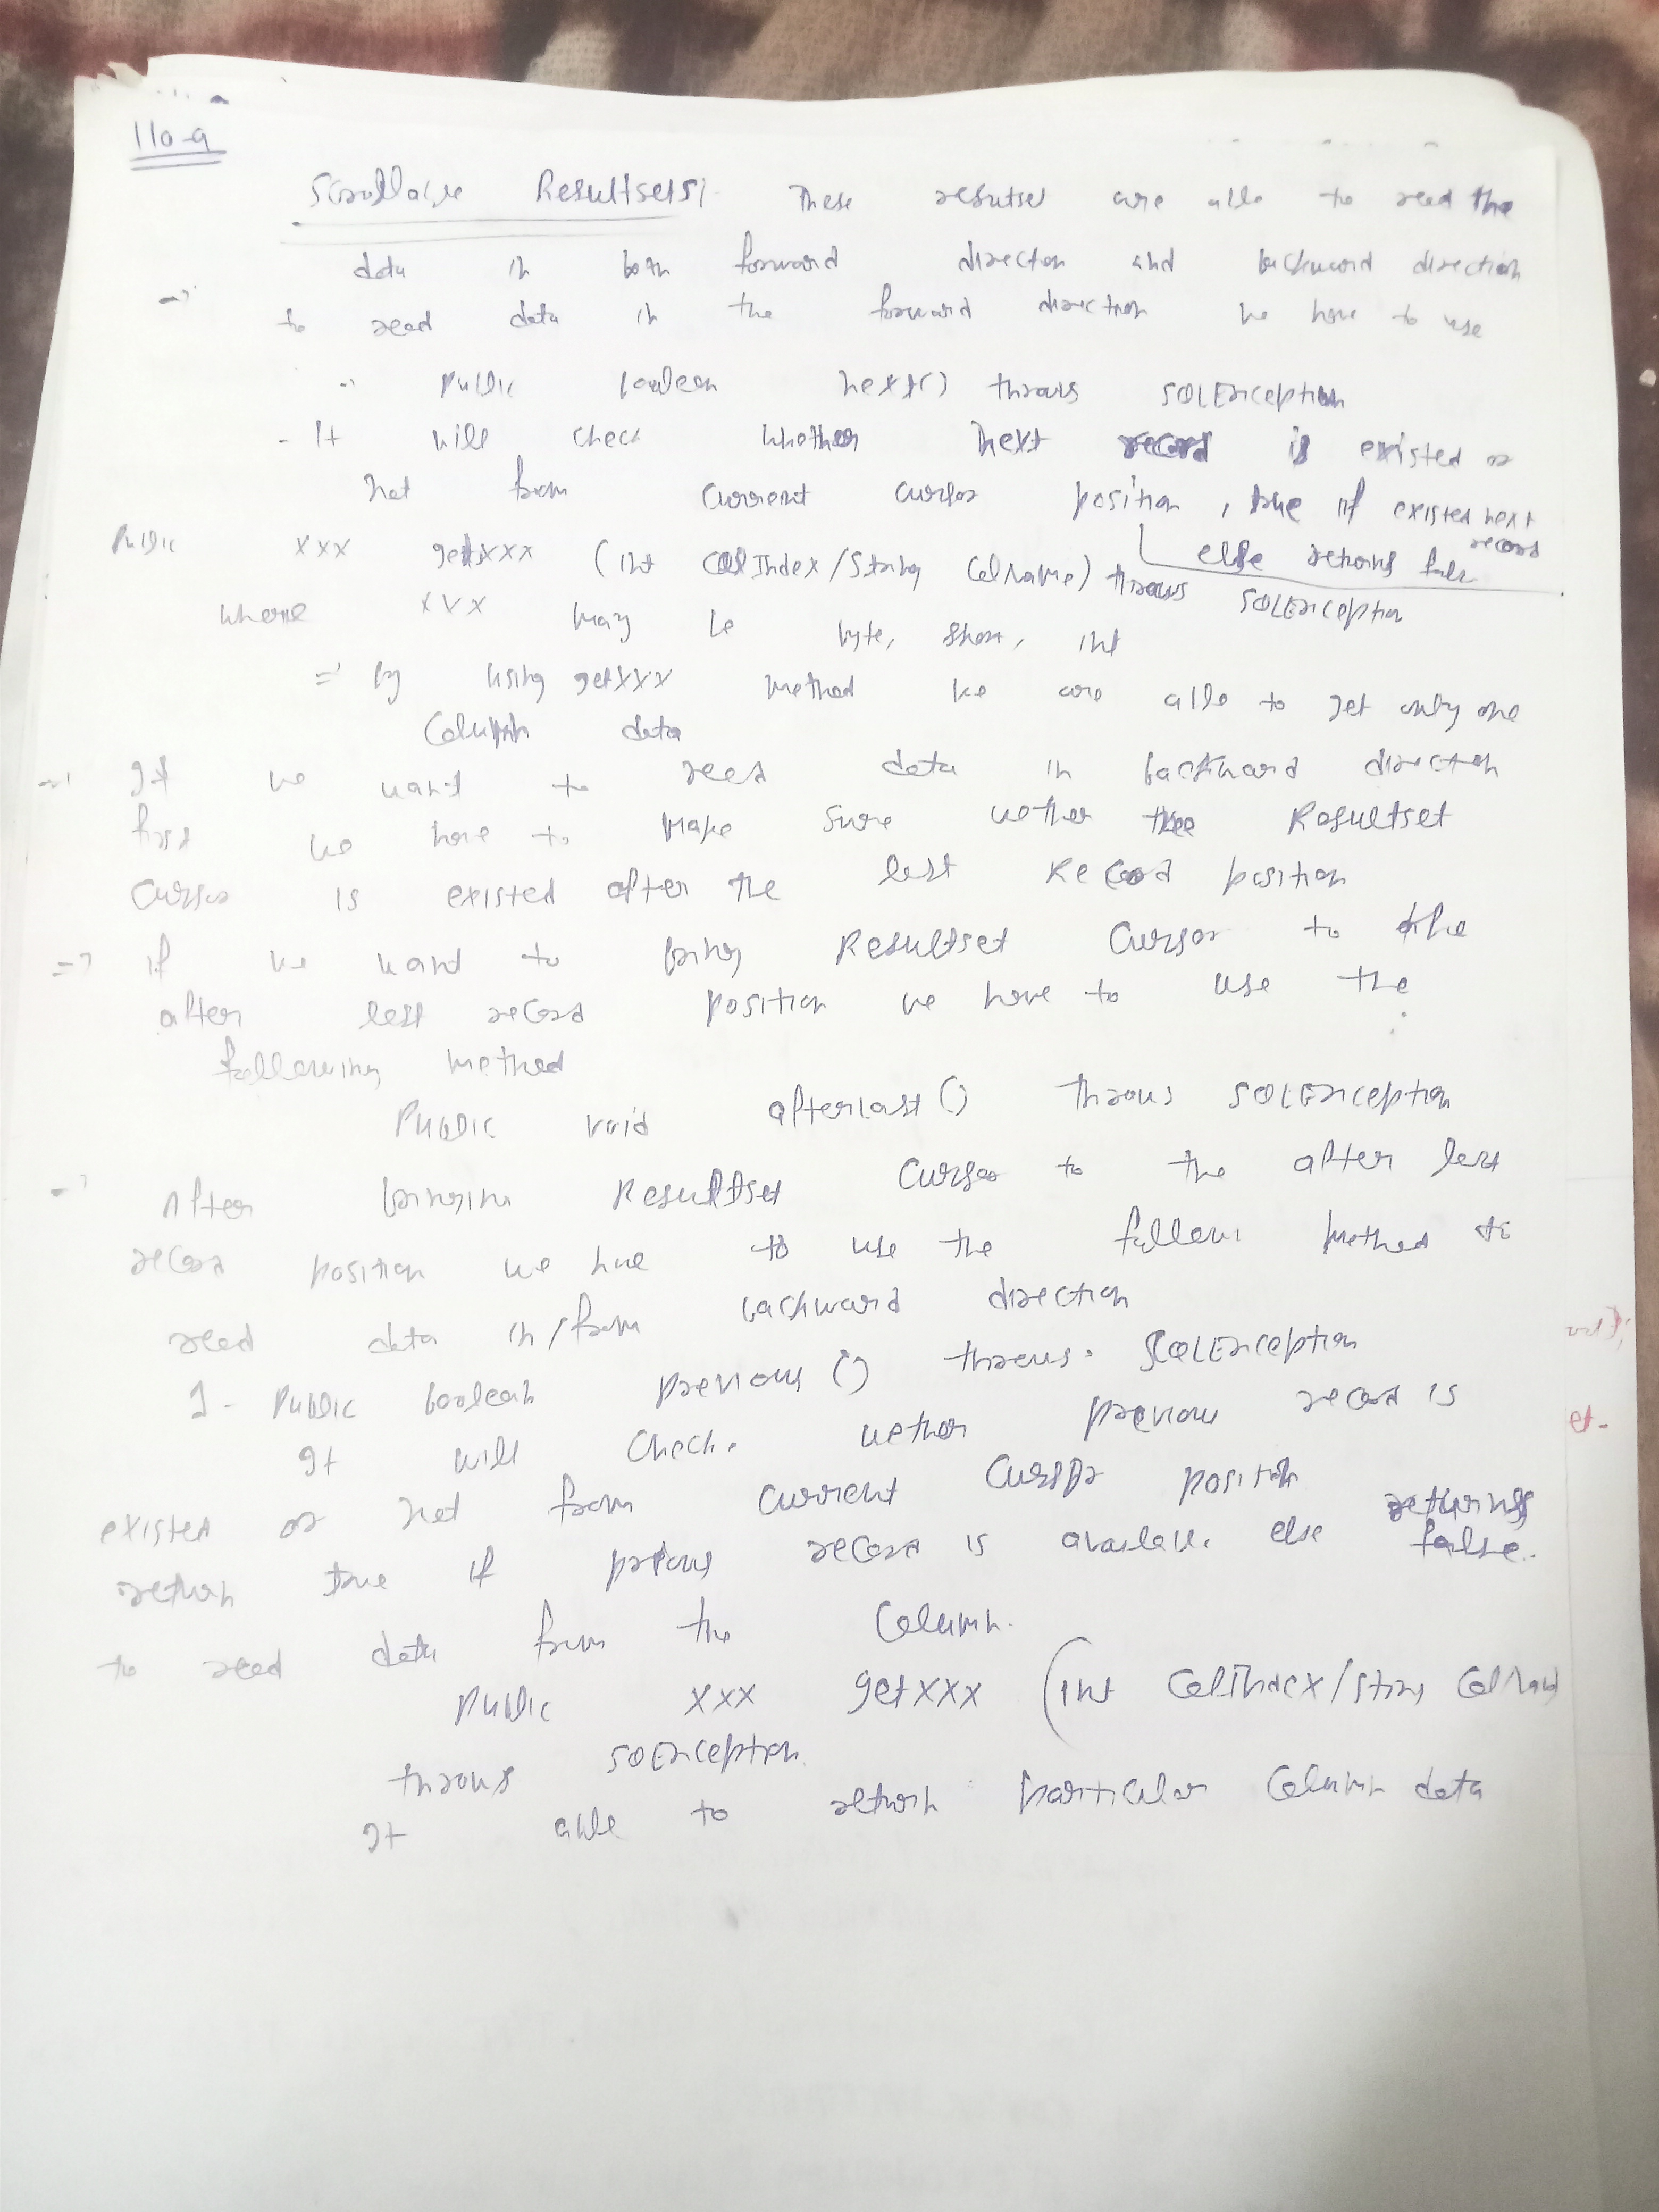 110-a
Scrollable Resultsets:- These resutset are able to read the
data in both forward directon and backward direction
=> to read data in the forward direction we have to use
=> public boolean next() throws SQLException
- It will check whether next record is existed or
not from current cursor position, true if existed next record
else returns false
public xxx getxxx (int ColIndex/String ColName) throws SQLException
where xxx may be byte, short, int
=> by using getxxx method we are able to get only one
Column data
=> If we want to read data in backward direction
first we have to make sure wether the Resultset
Cursor is existed after the last Record position
=> if we want to bring Resultset Cursor to the
after last record position we have to use the
following method
Public void afterlast() throws SQLException
=> After bringing Resultset Cursor to the after last
record position we have to use the method to
read data in/from backward direction
1- Public boolean previous() throws SQLException
It will check wether previous record is
existed or not from current Cursor position
return true if previous record is available else returns false.
to read data from the Column.
Public xxx getxxx (int ColIndex/String ColName
throws SQException
It able to return particular Column data
et-